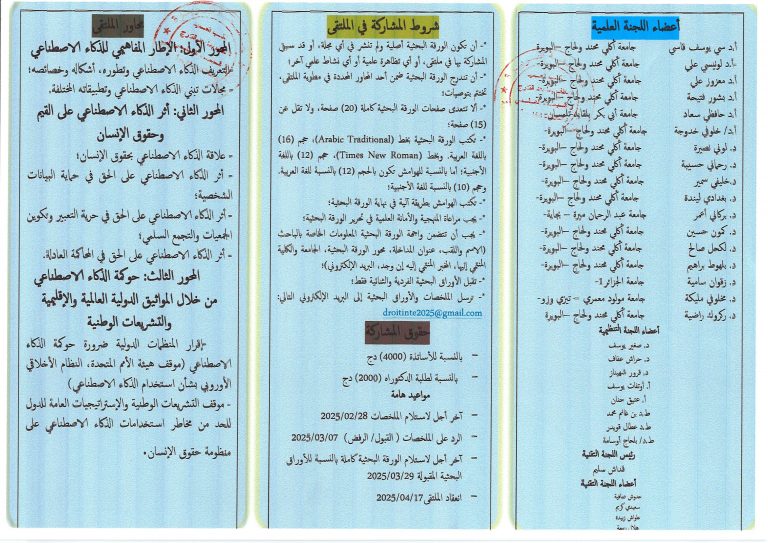 أعضاء اللجنة العلمية
أ.د سي يوسف قاسي جامعة أكلي محند ولحاج –البويرة
أ.د لونيسي علي جامعة أكلي محند ولحاج –البويرة-
أ.د معزوز علي جامعة أكلي محند ولحاج –البويرة-
أ.د بشور فتيحة جامعة أكلي محند ولحاج –البويرة-
أ.د حافظي سعاد جامعة أبي بكر بلقايد تلمسان-
أ.د/ خلوفي خدوجة جامعة أكلي محند ولحاج –البويرة-
د. لوني نصيرة جامعة أكلي محند ولحاج –البويرة-
د. رحماني حسيبة جامعة أكلي محند ولحاج –البويرة-
د.خليفي سمير جامعة أكلي محند ولحاج –البويرة-
د. بغدادي ليندة جامعة أكلي محند ولحاج –البويرة-
د. بركاني أعمر جامعة عبد الرحمان ميرة – بجاية-
د. كمون حسين جامعة أكلي محند ولحاج –البويرة-
د. لكحل صالح جامعة أكلي محند ولحاج –البويرة-
د. بلهوط براهيم جامعة أكلي محند ولحاج –البويرة-
د. زقوان سامية جامعة الجزائر 1-
د. مخلوفي مليكة جامعة مولود معمري – تيزي وزو-
د. ركروك راضية جامعة أكلي محند ولحاج –البويرة-
أعضاء اللجنة التنظيمية
د. صغير يوسف
د. حراش عفاف
د. قرور شهيناز
أ. أوتفات يوسف
أ. عتيق حنان
ط.د بن غانم محمد
ط.د عطال قويدر
ط.د/ بلحاج أوسامة
رئيس اللجنة التقنية
قداش سليم
أعضاء اللجنة التقنية
سعيدي كريم
شروط المشاركة في الملتقى
-* أن تكون الورقة البحثية أصلية ولم تنشر في أي مجلة، أو قد سبق
المشاركة بها في ملتقى، أو أي تظاهرة علمية أو أي نشاط علمي آخر؛
-* أن تندرج الورقة البحثية ضمن أحد المحاور المحددة في مطوية الملتقى،
تختتم بتوصيات؛
-* ألا تتعدى صفحات الورقة البحثية كاملة (20) صفحة، ولا تقل عن
(15) صفحة؛
-* تكتب الورقة البحثية بخط (Arabic Traditional)، حجم (16)
باللغة العربية، وبخط (Times New Roman)، حجم (12) باللغة
الأجنبية؛ أما بالنسبة للهوامش تكون بالحجم (12) بالنسبة للغة العربية.
وحجم (10) بالنسبة للغة الأجنبية؛
-* تكتب الهوامش بطريقة آلية في نهاية الورقة البحثية؛
-* يجب مراعاة المنهجية والأمانة العلمية في تحرير الورقة البحثية؛
-* يجب أن تتضمن واجهة الورقة البحثية المعلومات الخاصة بالباحث
(الاسم واللقب، عنوان المداخلة، محور الورقة البحثية، الجامعة والكلية
المنتمي إليها، المخبر المنتمي إليه إن وجد، البريد الإلكتروني)؛
-* تقبل الأوراق البحثية الفردية والثنائية فقط؛
-* ترسل الملخصات والأوراق البحثية إلى البريد الإلكتروني التالي:
droitinte2025@gmail.com
حقوق المشاركة
– بالنسبة للأساتذة (4000) دج
– بالنسبة لطلبة الدكتوراه (2000) دج
مواعيد هامة
– آخر أجل لاستلام الملخصات 2025/02/28
– الرد على الملخصات ( القبول/ الرفض) 2025/03/07
– آخر أجل لاستلام الورقة البحثية كاملة بالنسبة للأوراق
البحثية المقبولة 2025/03/29
– انعقاد الملتقى 2025/04/17
محاور الملتقى
المحور الأول: الإطار المفاهيمي للذكاء الاصطناعي
- التعريف الذكاء الاصطناعي وتطوره، أشكاله وخصائصه؛
- مجالات تبني الذكاء الاصطناعي وتطبيقاته المختلفة.
المحور الثاني: أثر الذكاء الاصطناعي على القيم
وحقوق الإنسان
- علاقة الذكاء الاصطناعي بحقوق الإنسان؛
- أثر الذكاء الاصطناعي على الحق في حماية البيانات
الشخصية؛
- أثر الذكاء الاصطناعي على الحق في حرية التعبير وتكوين
الجمعيات والتجمع السلمي؛
- أثر الذكاء الاصطناعي على الحق في المحاكمة العادلة.
المحور الثالث: حوكمة الذكاء الاصطناعي
من خلال المواثيق الدولية العالمية والإقليمية
والتشريعات الوطنية
-إقرار المنظمات الدولية ضرورة حوكمة الذكاء
الاصطناعي (موقف هيئة الأمم المتحدة، النظام الأخلاقي
الأوروبي بشأن استخدام الذكاء الاصطناعي)
-موقف التشريعات الوطنية والإستراتيجيات العامة للدول
للحد من مخاطر استخدامات الذكاء الاصطناعي على
منظومة حقوق الإنسان.